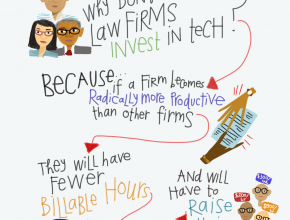 WHY DON'T
LAW FIRMS
INVEST in tech?
BECAUSE... if a FIRM becomes
Radically more Productive
than other firms
They will have
FEWER
Billable Hours
And will
Have to
RAISE